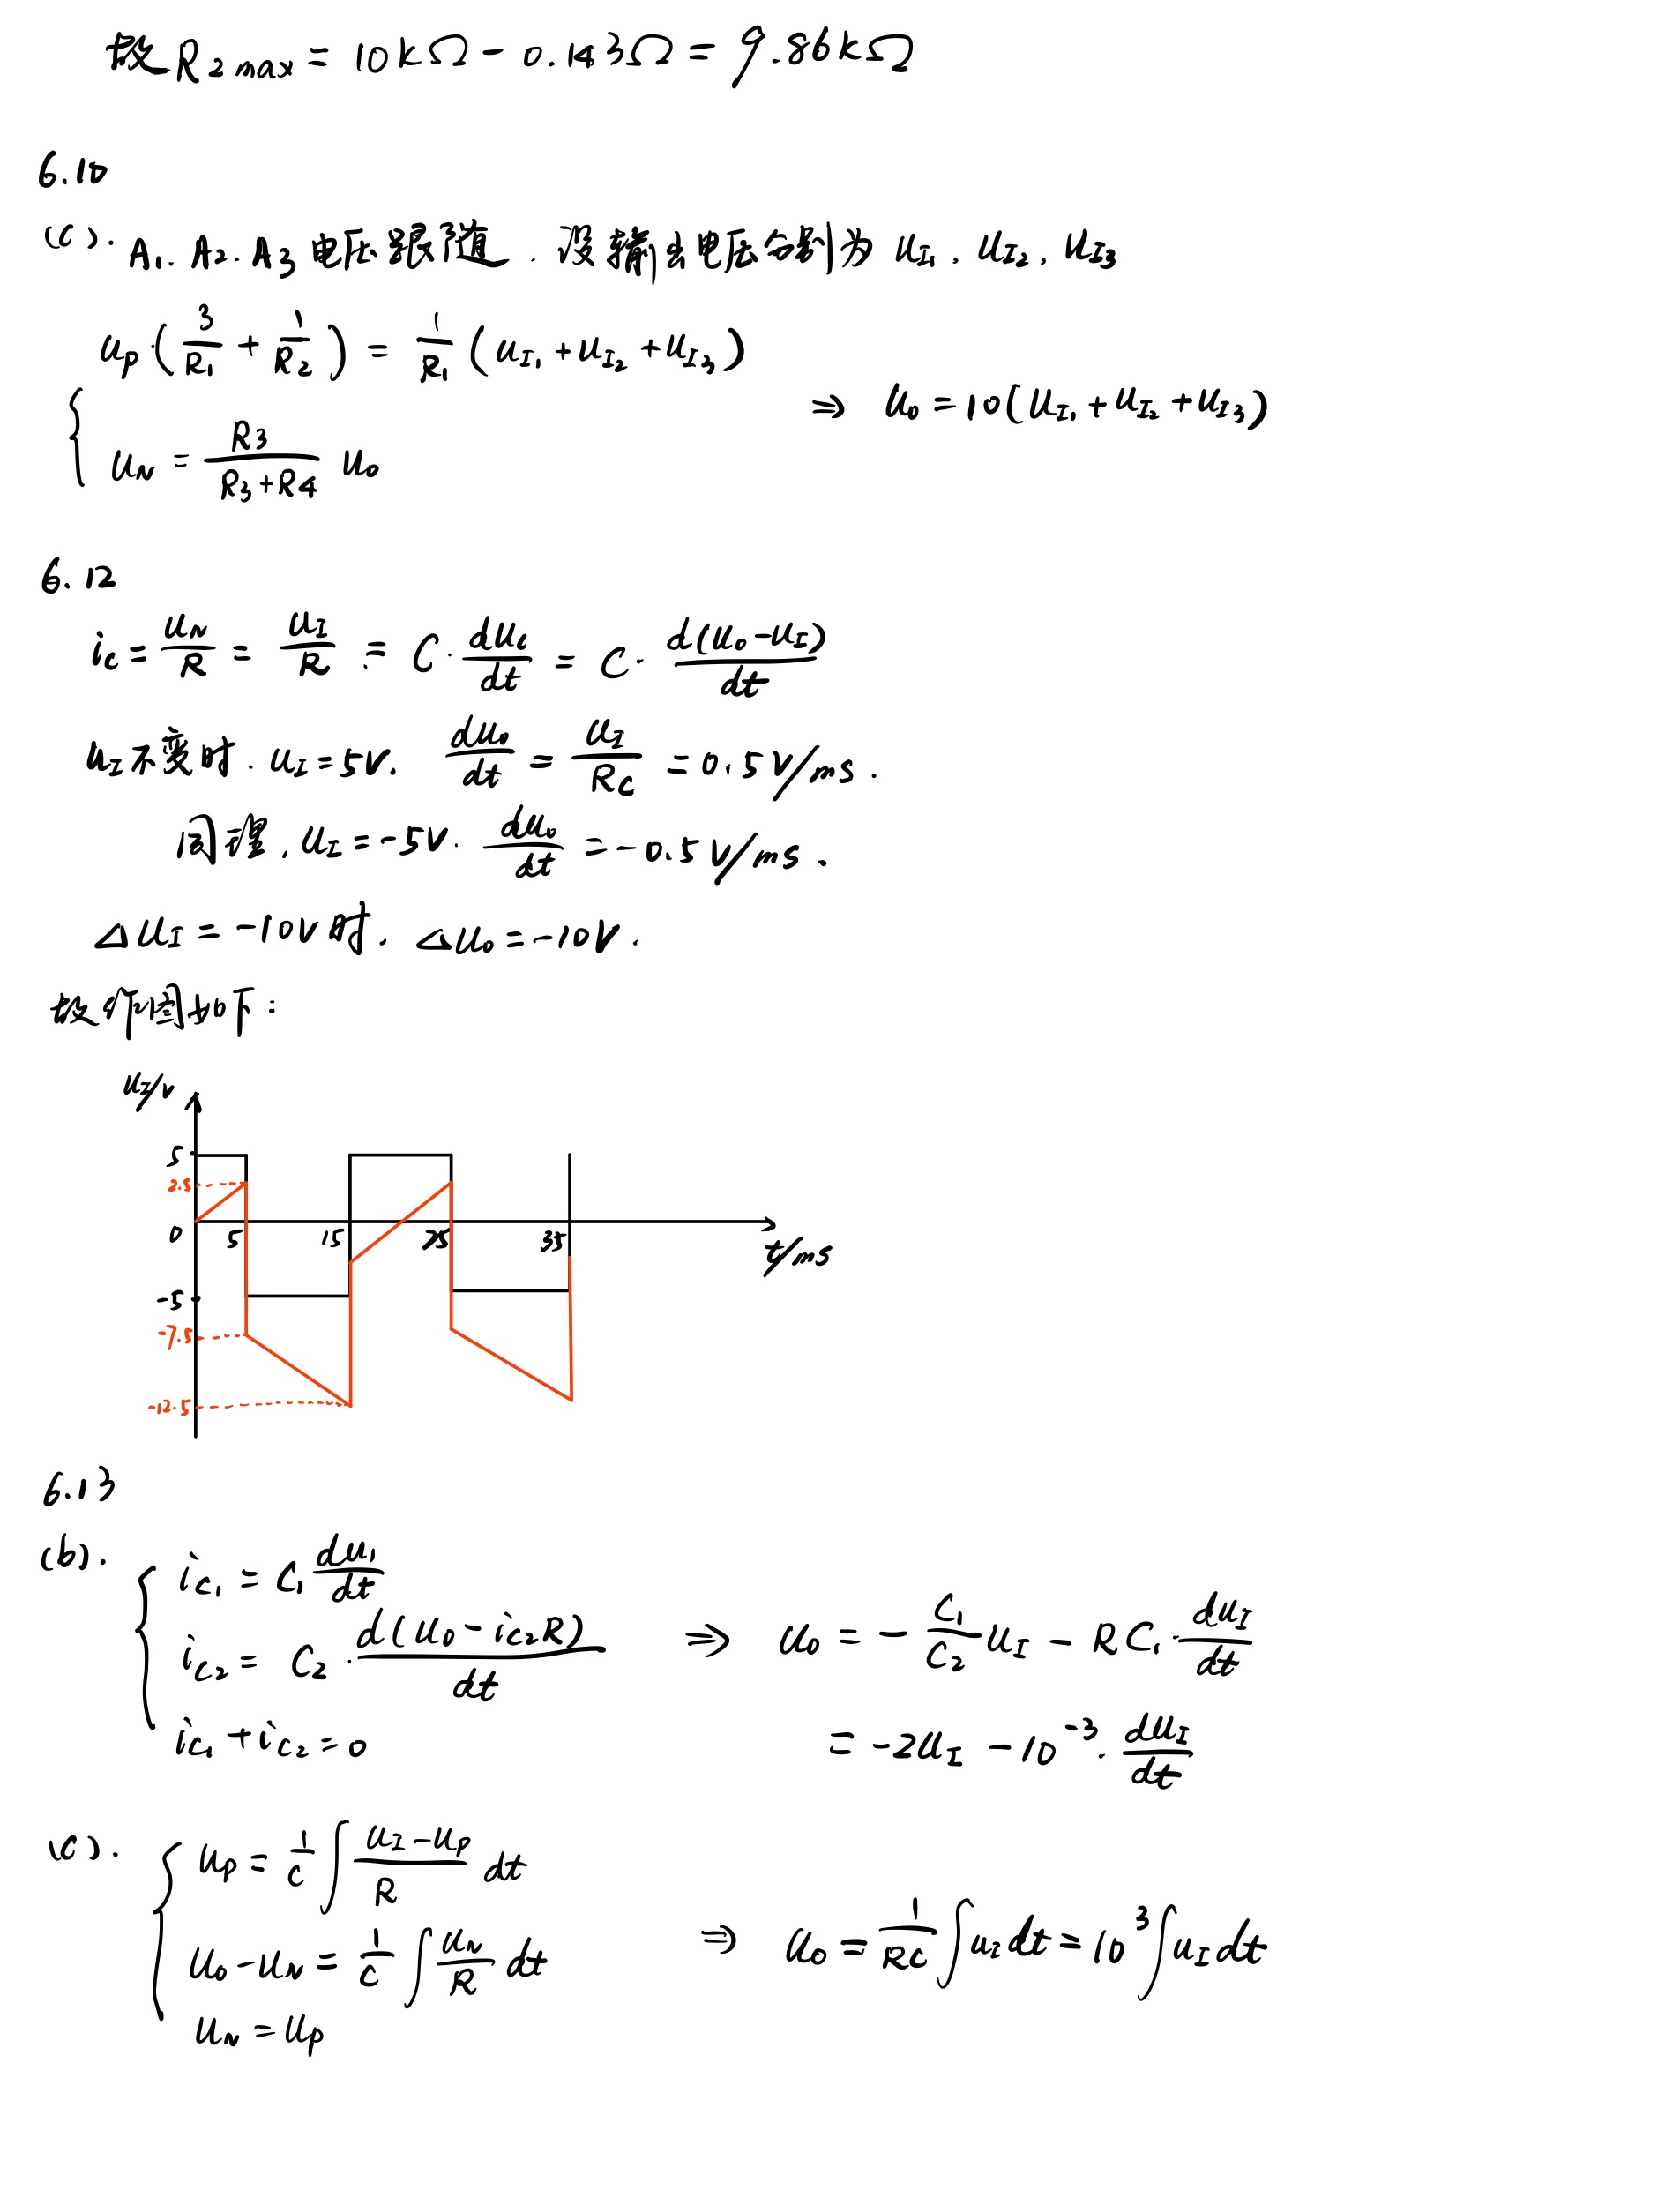 故R₂max = 10kΩ - 0.143Ω = 9.86kΩ
6.10
(c). A₁. A₂. A₃ 电压跟随. 设输出电压分别为 u_I₁, u_I₂, u_I₃
u_P·(3/R₁ + 1/R₂) = 1/R₁ (u_I₁ + u_I₂ + u_I₃)
u_N = R₃/(R₃+R₄) u_o
⇒ u_o = 10(u_I₁ + u_I₂ + u_I₃)
6.12
i_c = u_N/R = u_I/R = C·du_c/dt = C·d(u_o-u_I)/dt
u_I不变时. u_I = 5V. du_o/dt = u_I/RC = 0.5V/ms.
同理, u_I = -5V. du_o/dt = -0.5V/ms.
Δu_I = -10V时. Δu_o = -10V.
故作图如下:
u_I/V
5
2.5
0
5
15
25
35
t/ms
-5
-7.5
-12.5
6.13
(b).
i_c₁ = C₁ du₁/dt
i_c₂ = C₂·d(u_o - i_c₂R)/dt
i_c₁ + i_c₂ = 0
⇒ u_o = -C₁/C₂ u_I - RC₁·du_I/dt
= -2u_I - 10⁻³·du_I/dt
(c).
u_P = 1/C ∫ (u_I-u_P)/R dt
u_o - u_N = 1/C ∫ u_N/R dt
u_N = u_P
⇒ u_o = 1/RC ∫u_I dt = 10³∫u_I dt